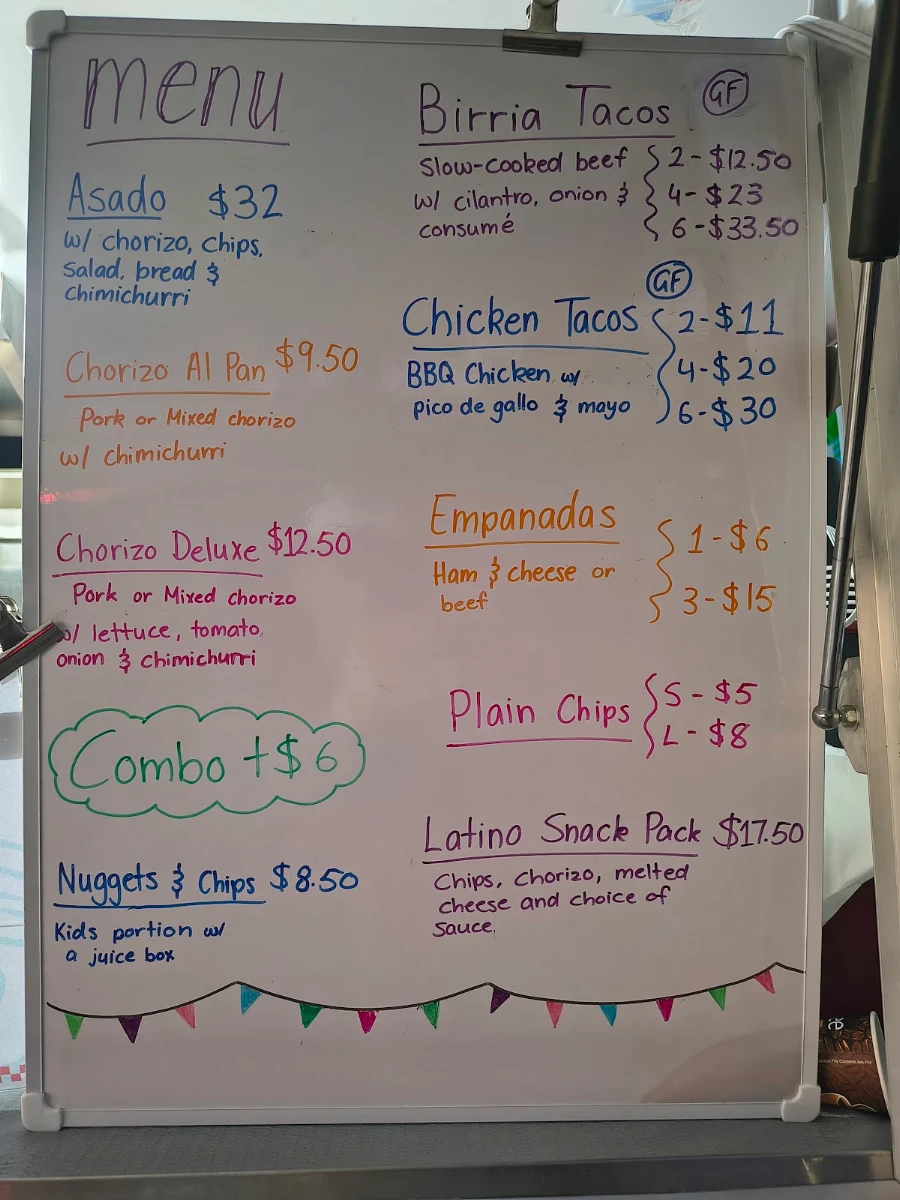 menu
Asado $32
w/ chorizo, chips,
salad, bread &
chimichurri
Chorizo Al Pan $9.50
Pork or Mixed chorizo
w/ chimichurri
Chorizo Deluxe $12.50
Pork or Mixed chorizo
w/ lettuce, tomato,
onion & chimichurri
Combo +$6
Nuggets & Chips $8.50
Kids portion w/
a juice box
Birria Tacos GF
Slow-cooked beef 2-$12.50
w/ cilantro, onion & 4-$23
consumé 6-$33.50
GF
Chicken Tacos 2-$11
BBQ Chicken w/ 4-$20
pico de gallo & mayo 6-$30
Empanadas
1-$6
Ham & cheese or
beef 3-$15
Plain Chips S-$5
L-$8
Latino Snack Pack $17.50
Chips, Chorizo, melted
cheese and choice of
sauce.